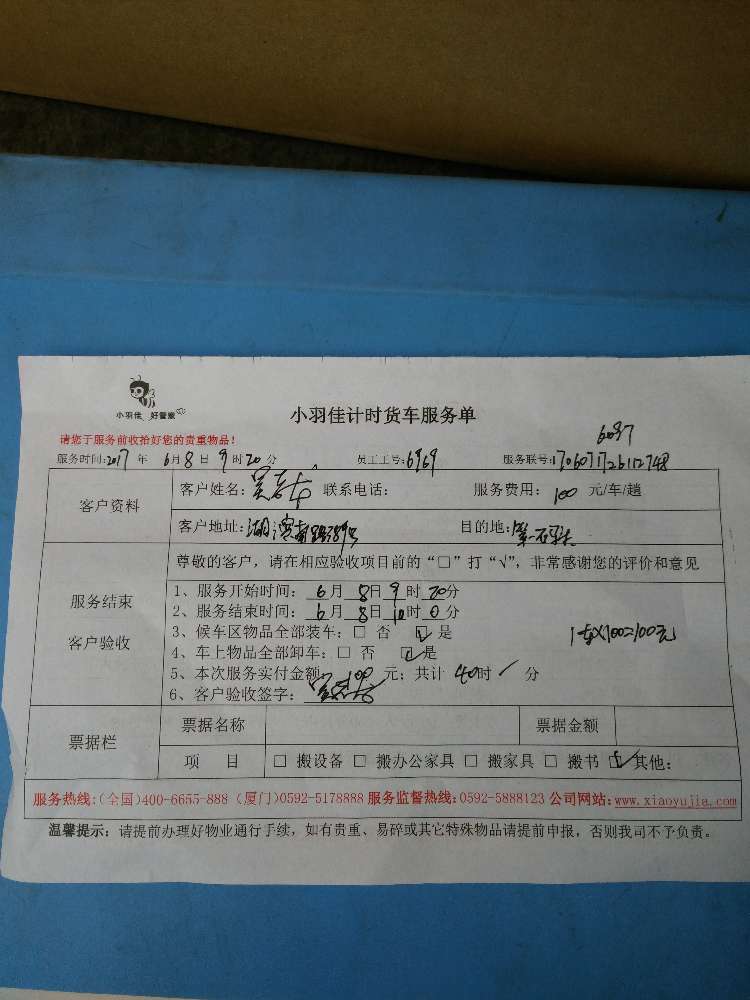 小羽佳 好管家
小羽佳计时货车服务单
请您于服务前收拾好您的贵重物品！
6097
服务时间:2017 年 6月 8 日 9 时 20 分 员工工号:6969 服务联号:
客户资料
客户姓名: 联系电话: 服务费用: 100 元/车/趟
客户地址:湖滨南路389号 目的地:第一码头
服务结束
客户验收
尊敬的客户，请在相应验收项目前的“□”打“√”，非常感谢您的评价和意见
1、服务开始时间: 6 月 8日 9 时 20分
2、服务结束时间: 6 月 8日 10时 0 分
3、候车区物品全部装车: □ 否 ☑ 是
1车X100=100元
4、车上物品全部卸车: □ 否 ☑ 是
5、本次服务实付金额 100 元; 共计 40时 分
6、客户验收签字:
票据栏
票据名称 票据金额
项 目 □ 搬设备 □ 搬办公家具 □ 搬家具 □ 搬书 ☑ 其他:
服务热线:(全国)400-6655-888 (厦门)0592-5178888 服务监督热线:0592-5888123 公司网站:www.xiaoyujia.com
温馨提示: 请提前办理好物业通行手续，如有贵重、易碎或其它特殊物品请提前申报，否则我司不予负责。